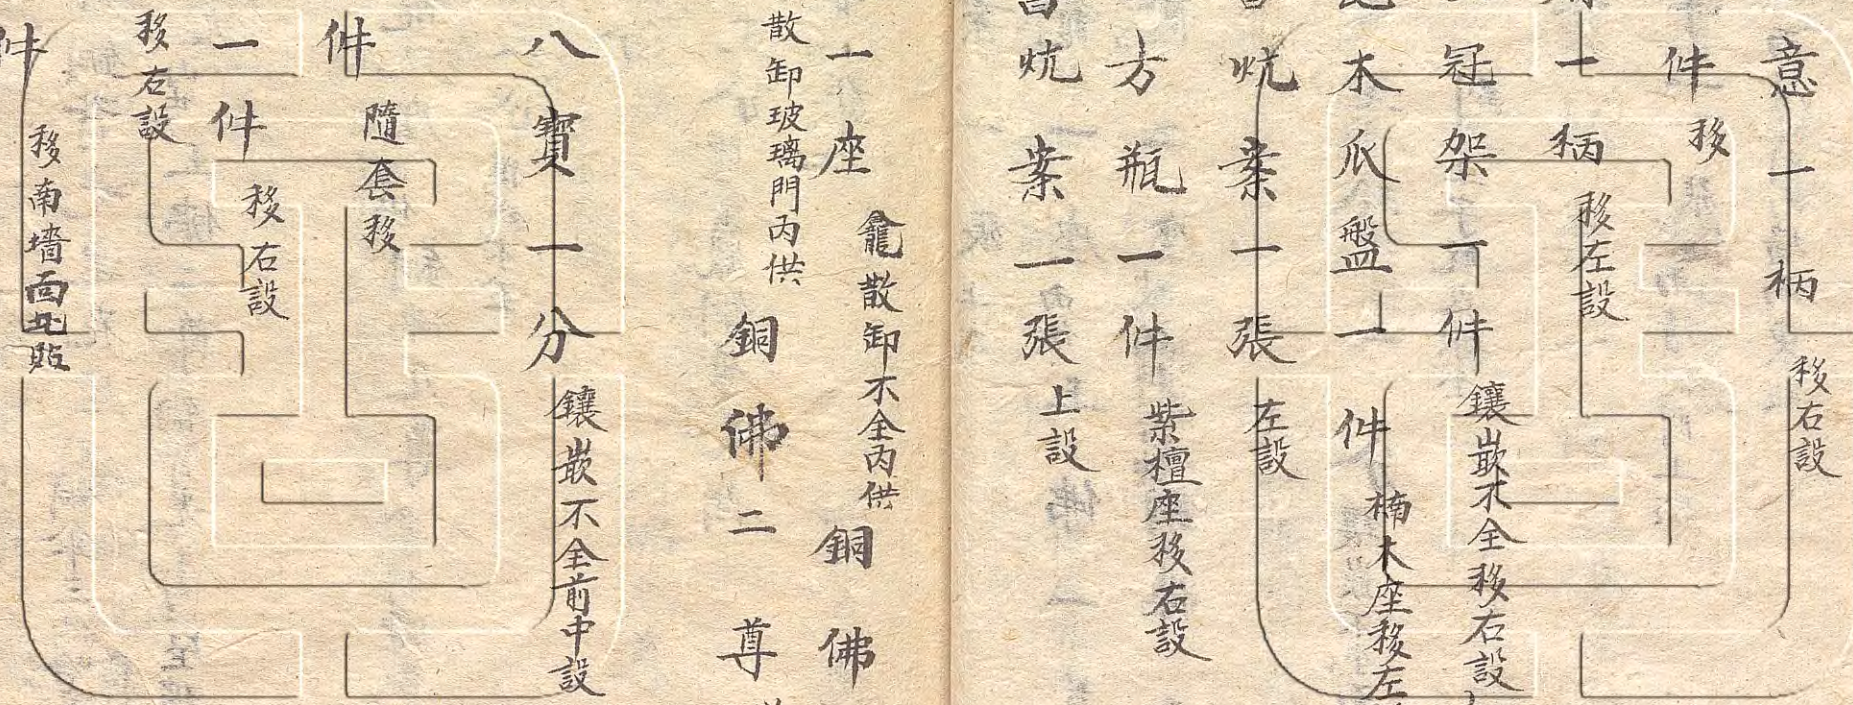 意一柄 移右設
件 移
一柄 移左設
冠架一件 鑲嵌不全移右設
木瓜盤一件 楠木座移左
炕案一張 左設
方瓶一件 紫檀座移右設
炕案一張 上設
龕散卸不全內供 銅佛
一座
散卸玻璃門內供 銅佛二尊
八寶一分 鑲嵌不全前中設
件 隨套移
一件 移右設
移右設
件 移南墻面北貼